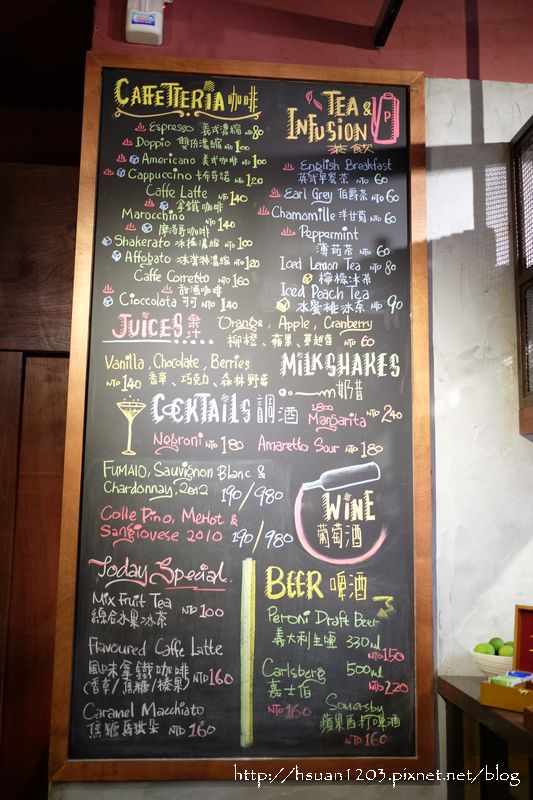 CAFFETTERIA 咖啡
Espresso 義式濃縮 NTD 80
Doppio 雙份濃縮 NTD 100
Americano 美式咖啡 NTD 100
Cappuccino 卡布奇諾 NTD 120
Caffe Latte
拿鐵咖啡 NTD 140
Marocchino
摩洛哥咖啡 NTD 140
Shakerato 冰搖濃縮 NTD 100
Affogato 冰淇淋濃縮 NTD 120
Caffe Corretto
甜酒咖啡 NTD 160
Cioccolata 可可 NTD 140
TEA & INFUSION
茶飲
P
English Breakfast
英式早餐茶 NTD 60
Earl Grey 伯爵茶 NTD 60
Chamomille 洋甘菊 NTD 60
Peppermint
薄荷茶 NTD 60
Iced Lemon Tea NTD 80
檸檬冰茶
Iced Peach Tea
水蜜桃冰茶 NTD 90
JUICES 果汁
Orange, Apple, Cranberry
柳橙、蘋果、蔓越莓 NTD 60
Vanilla, Chocolate, Berries
NTD 140 香草、巧克力、森林野莓
MILKSHAKES
奶昔
COCKTAILS 調酒
Margarita NTD 240
Negroni NTD 180
Amaretto Sour NTD 180
FUMAIO, Sauvignon Blanc &
Chardonnay, 2012 190/980
Colle Pino, Merlot &
Sangiovese 2010 190/980
WINE
葡萄酒
Today Special.
Mix Fruit Tea
綜合水果冰茶 NTD 100
Flavoured Caffe Latte
風味拿鐵咖啡
(香草/焦糖/榛果) NTD 160
Caramel Macchiato
焦糖馬琪朵 NTD 160
BEER 啤酒
Peroni Draft Beer
義大利生啤 330ml
NTD 150
Carlsberg 500ml
嘉士伯 NTD 220
NTD 160
Somersby
蘋果西打啤酒
NTD 160
http://hsuan1203.pixnet.net/blog